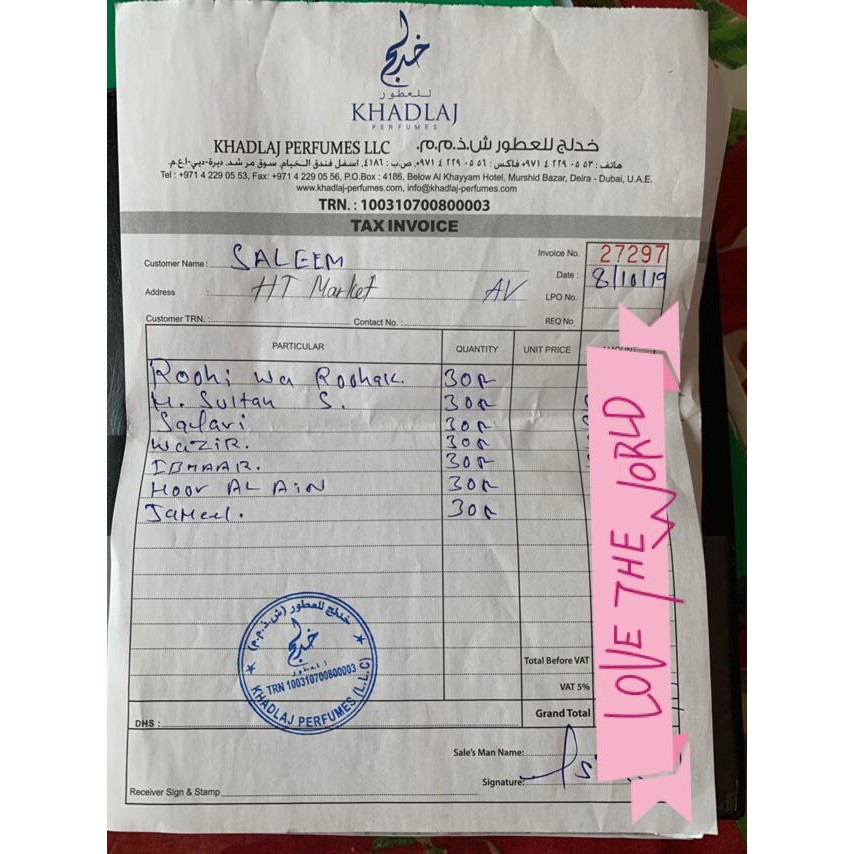 خدلج
للعطور
KHADLAJ
PERFUMES
KHADLAJ PERFUMES LLC خدلج للعطور ش.ذ.م.م.
هاتف : ٥٣ ٠٥ ٢٢٩ ٤ ٩٧١+ فاكس : ٥٦ ٠٥ ٢٢٩ ٤ ٩٧١+ ص.ب : ٤١٨٦، اسفل فندق الخيام, سوق مرشد, ديرة-دبي-ا.ع.م.
Tel : +971 4 229 05 53, Fax: +971 4 229 05 56, P.O.Box : 4186, Below Al Khayyam Hotel, Murshid Bazar, Deira - Dubai, U.A.E.
www.khadlaj-perfumes.com, info@khadlaj-perfumes.com
TRN. : 100310700800003
TAX INVOICE
Customer Name : SALEEM Invoice No. 27297
Date : 8/10/19
Address : HT Market AV LPO No.
Customer TRN. : Contact No. : REQ No
PARTICULAR QUANTITY UNIT PRICE
Roohi wa Roohak. 30
H. Sultan S. 30
Safari 30
WAZIR. 30
IBHAAR. 30
HOOR AL AIN 30
Jameel. 30
LOVE THE WORLD
خدلج للعطور (ش.ذ.م.م)
خدلج
للعطور
TRN 100310700800003
KHADLAJ PERFUMES (L.L.C)
Total Before VAT
VAT 5%
Grand Total
DHS :
Sale's Man Name:
Signature:
Receiver Sign & Stamp